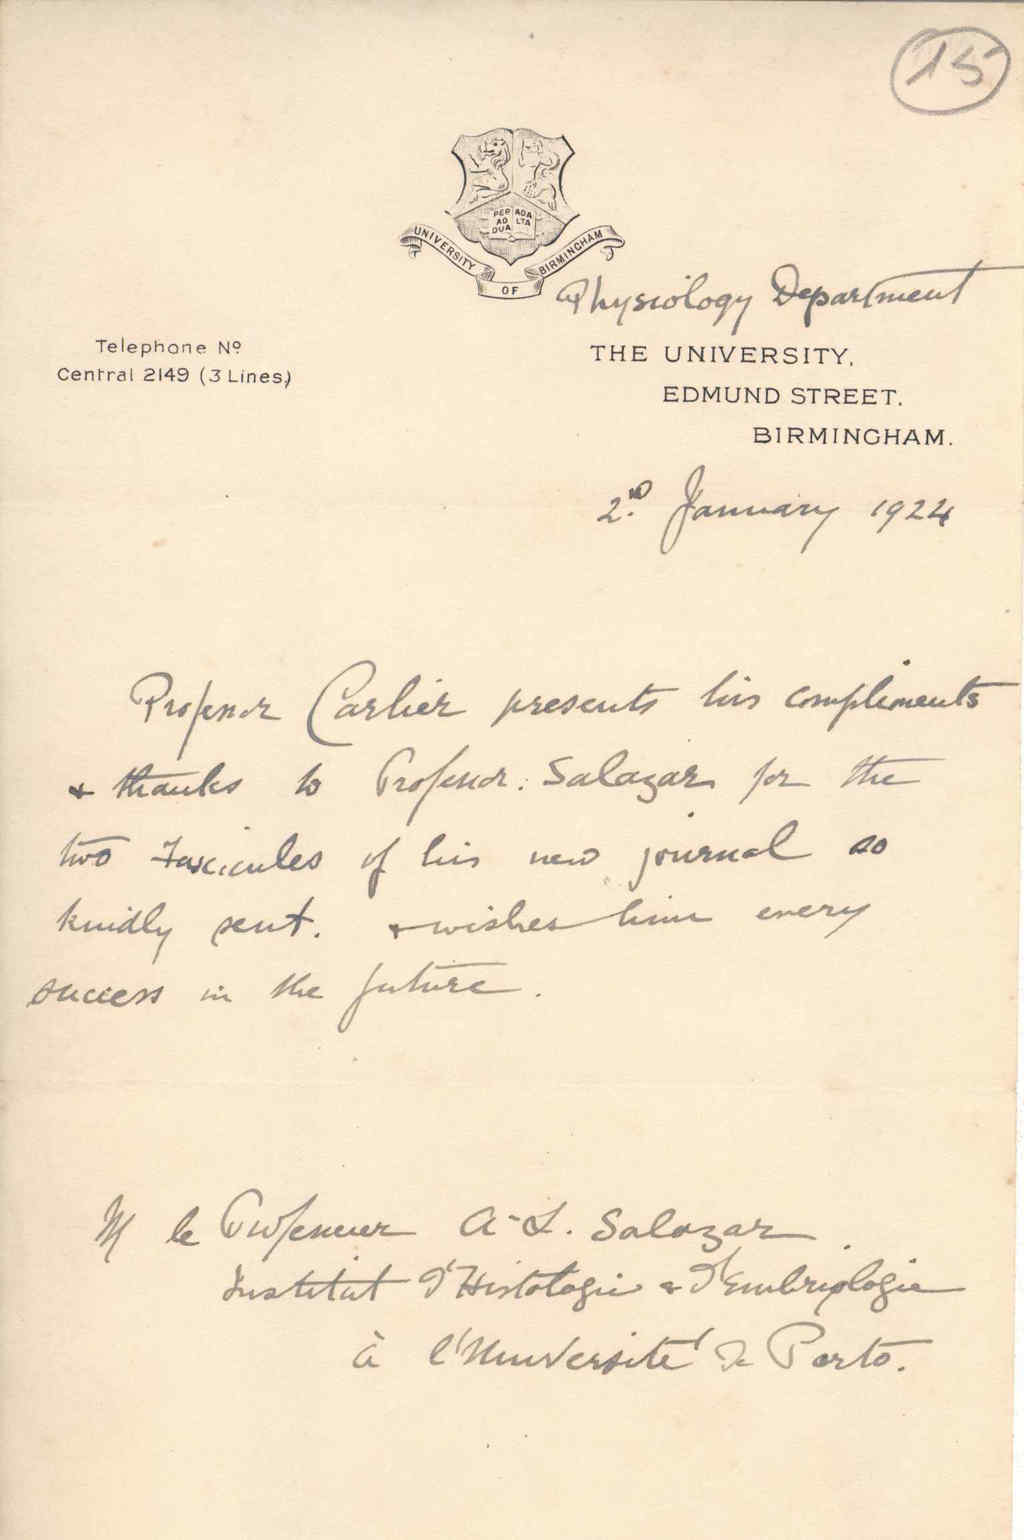 15
PER ADA
AD LTA
DUA
UNIVERSITY OF BIRMINGHAM
Physiology Department
Telephone Nº
Central 2149 (3 Lines)
THE UNIVERSITY,
EDMUND STREET.
BIRMINGHAM.
2.ⁿᵈ January 1924
Professor Carlier presents his compliments
& thanks to Professor. Salazar for the
two fascicules of his new journal so
kindly sent. & wishes him every
success in the future.
M le Professeur A-L. Salazar
Institut d'Histologie & d'Embriologie
à l'Université de Porto.